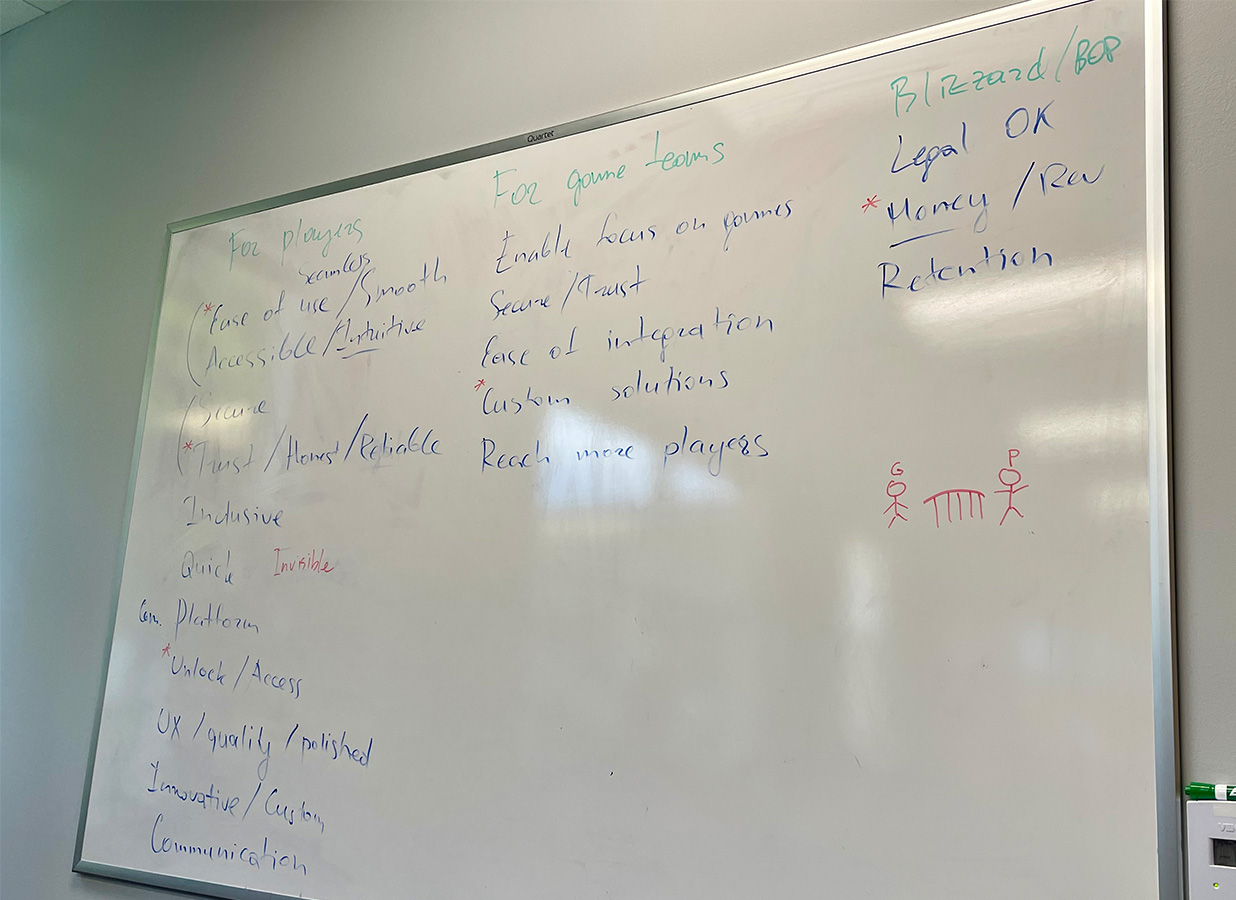 Quartet
For players
Seamless
(*Ease of use/Smooth
(Accessible/Intuitive
(Secure
(*Trust/Honest/Reliable
Inclusive
Quick Invisible
Com. Platform
*Unlock/Access
UX/quality/polished
Innovative/Custom
Communication
For game teams
Enable focus on games
Secure/Trust
Ease of integration
*Custom solutions
Reach more players
Blizzard/
Legal OK
*Money/Rev
Retention
G P